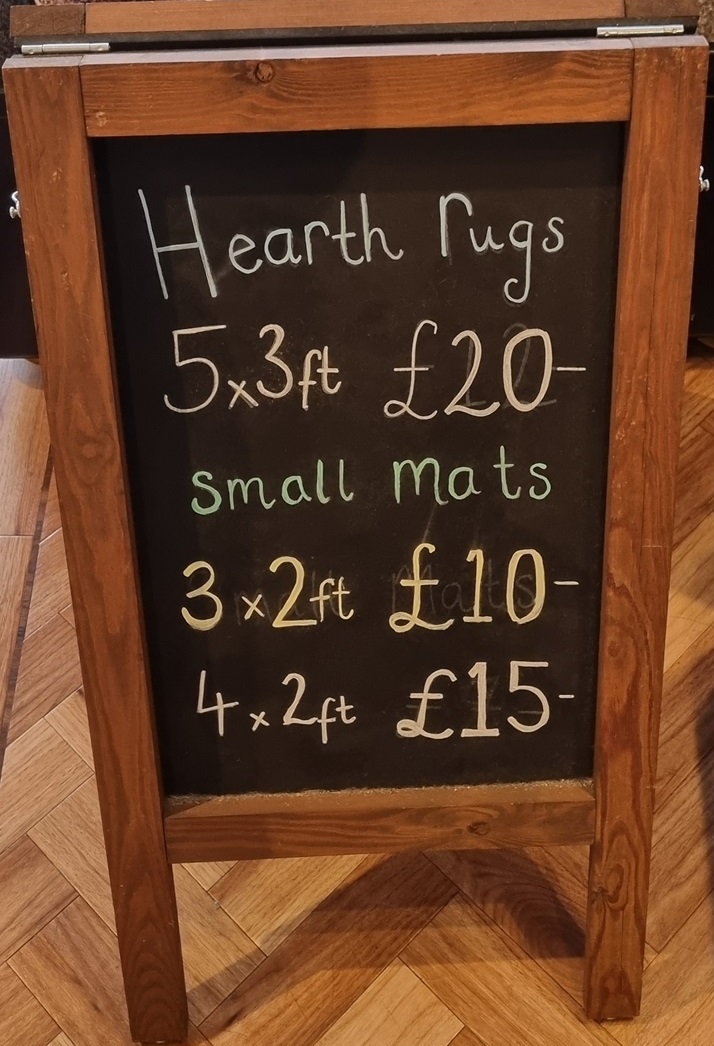 Hearth rugs
5x3ft £20-
small mats
3x2ft £10-
4x2ft £15-